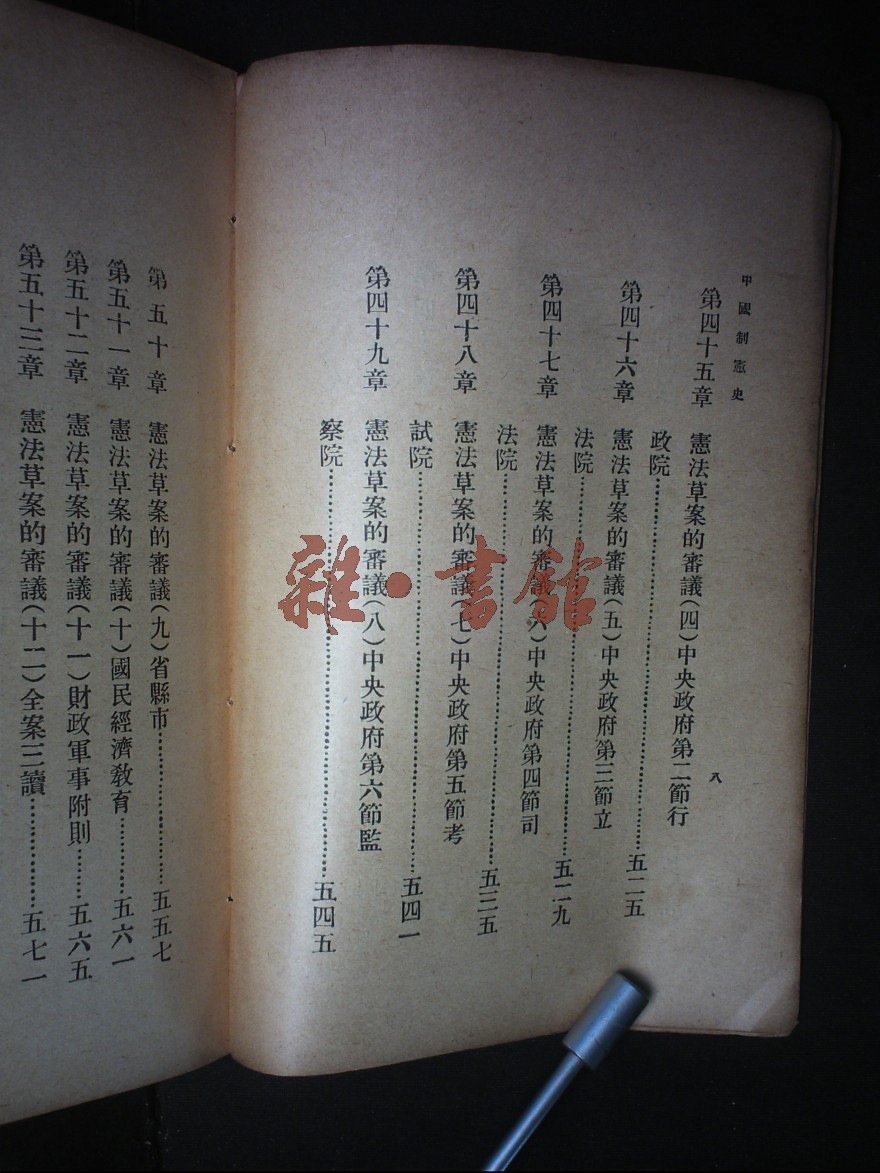 中國制憲史
八
第四十五章　憲法草案的審議(四)中央政府第二節行
政院……五二五
第四十六章　憲法草案的審議(五)中央政府第三節立
法院……五二九
第四十七章　憲法草案的審議(六)中央政府第四節司
法院……五三五
第四十八章　憲法草案的審議(七)中央政府第五節考
試院……五四一
第四十九章　憲法草案的審議(八)中央政府第六節監
察院……五四五
第五十章　憲法草案的審議(九)省縣市……五五七
第五十一章　憲法草案的審議(十)國民經濟教育……五六一
第五十二章　憲法草案的審議(十一)財政軍事附則……五六五
第五十三章　憲法草案的審議(十二)全案三讀……五七一
雜·書館